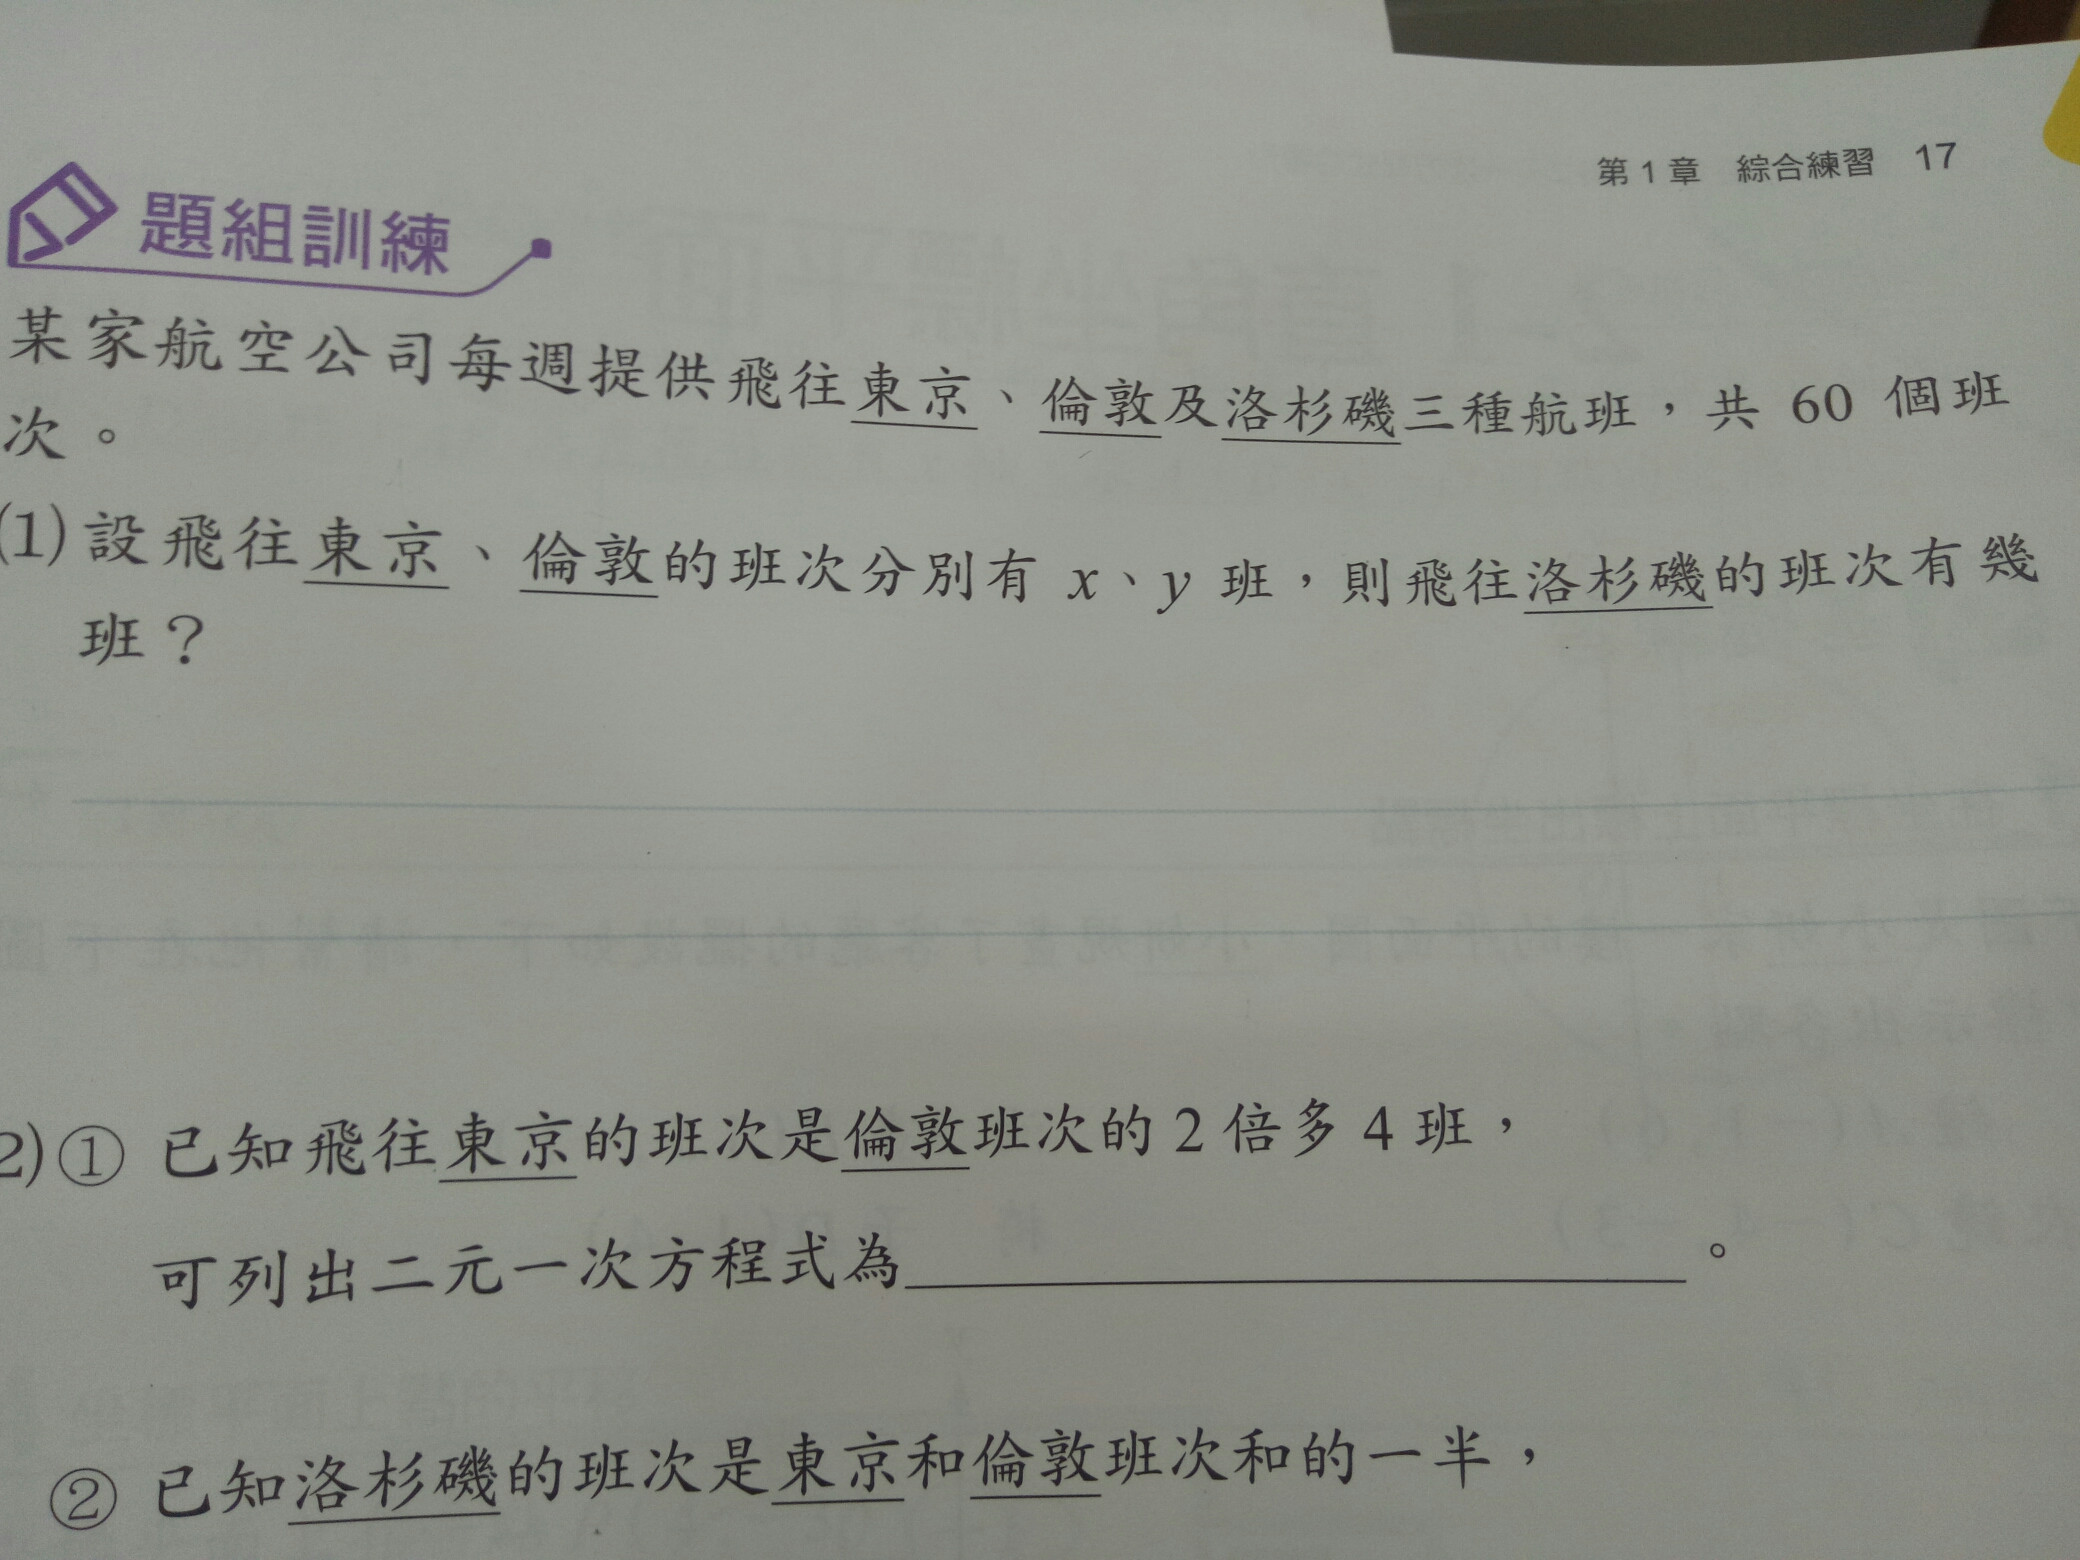 第1章 綜合練習 17
題組訓練
某家航空公司每週提供飛往東京、倫敦及洛杉磯三種航班，共 60 個班
次。
(1)設飛往東京、倫敦的班次分別有 x、y 班，則飛往洛杉磯的班次有幾
班？
2)① 已知飛往東京的班次是倫敦班次的 2 倍多 4 班，
可列出二元一次方程式為＿＿＿＿＿＿＿＿。
② 已知洛杉磯的班次是東京和倫敦班次和的一半，